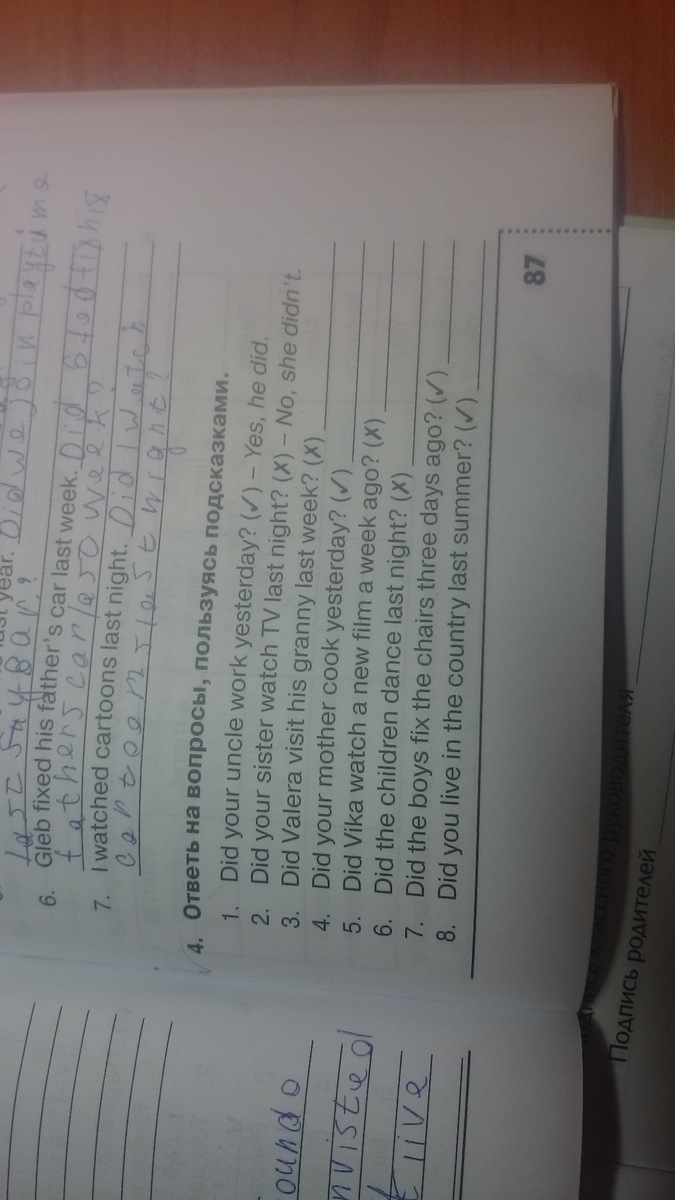 last year. Did we join playtime
last say Bar?
6. Gleb fixed his father's car last week. Did
fathers car last week?
7. I watched cartoons last night. Did I watch
cartoons last night?
4. Ответь на вопросы, пользуясь подсказками.
1. Did your uncle work yesterday? (✓) – Yes, he did.
2. Did your sister watch TV last night? (✗) – No, she didn't.
3. Did Valera visit his granny last week? (✗)
4. Did your mother cook yesterday? (✓)
5. Did Vika watch a new film a week ago? (✗)
6. Did the children dance last night? (✗)
7. Did the boys fix the chairs three days ago? (✓)
8. Did you live in the country last summer? (✓)
87
live
классного руководителя
Подпись родителей